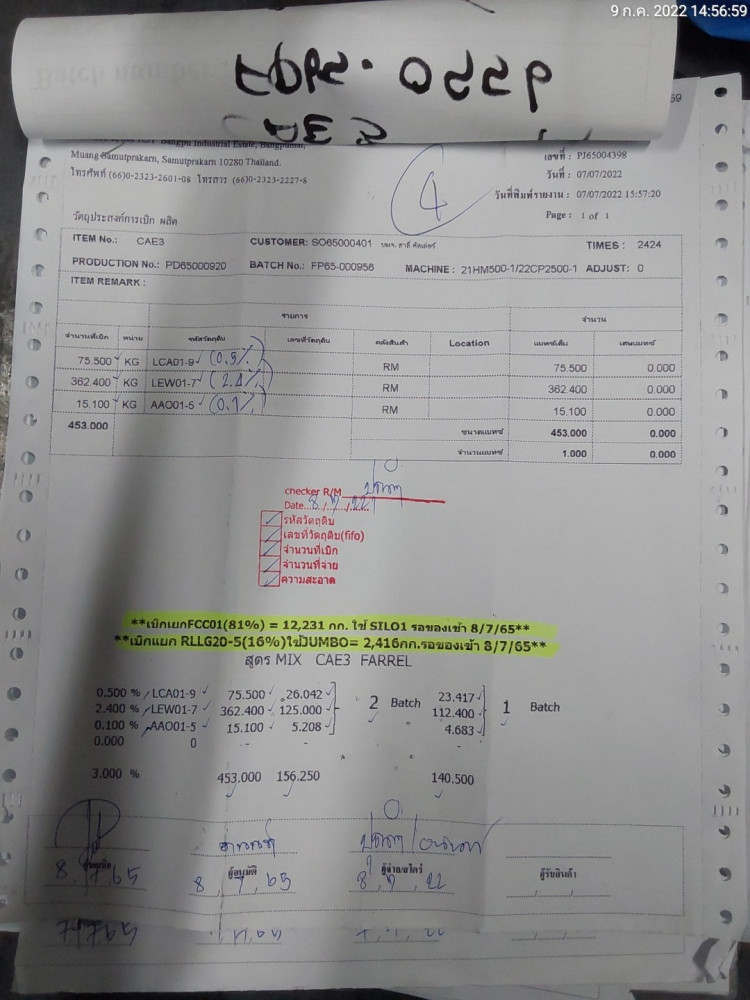 9 ก.ค. 2022 14:56:59
Bangpu Industrial Estate, Bangpumai,
Muang Samutprakarn, Samutprakarn 10280 Thailand.
โทรศัพท์ (66)0-2323-2601-08 โทรสาร (66)0-2323-2227-8
4
เลขที่ : PJ65004398
วันที่ : 07/07/2022
วันที่พิมพ์รายงาน : 07/07/2022 15:57:20
Page : 1 of 1
วัตถุประสงค์การเบิก ผลิต
ITEM No.: CAE3 CUSTOMER: SO65000401 TIMES : 2424
PRODUCTION No.: PD65000920 BATCH No.: FP65-000956 MACHINE : 21HM500-1/22CP2500-1 ADJUST: 0
ITEM REMARK :
รายการ จำนวน
จำนวนที่เบิก หน่วย รหัสวัตถุดิบ เลขที่วัตถุดิบ คลังสินค้า Location แบทช์เต็ม เศษแบทช์
75.500 KG LCA01-9 (0.5%) RM 75.500 0.000
362.400 KG LEW01-7 (2.4%) RM 362.400 0.000
15.100 KG AAO01-5 (0.1%) RM 15.100 0.000
453.000 ขนาดแบทช์ 453.000 0.000
จำนวนแบทช์ 1.000 0.000
checker R/M
Date 8/7/22
รหัสวัตถุดิบ
เลขที่วัตถุดิบ(fifo)
จำนวนที่เบิก
จำนวนที่จ่าย
ความสะอาด
**เบิกแยกFCC01(81%) = 12,231 กก. ใช้ SILO1 รอของเข้า 8/7/65**
**เบิกแยก RLLG20-5(16%)ใช้JUMBO= 2,416กก.รอของเข้า 8/7/65**
สูตร MIX CAE3 FARREL
0.500 % LCA01-9 75.500 26.042 23.417
2.400 % LEW01-7 362.400 125.000 2 Batch 112.400 1 Batch
0.100 % AAO01-5 15.100 5.208 4.683
0.000 0 - - -
3.000 % 453.000 156.250 140.500
8 7 65 ผู้อนุมัติ 8 7 65 ผู้จ่าย/สโตร์ 8 7 22 ผู้รับสินค้า